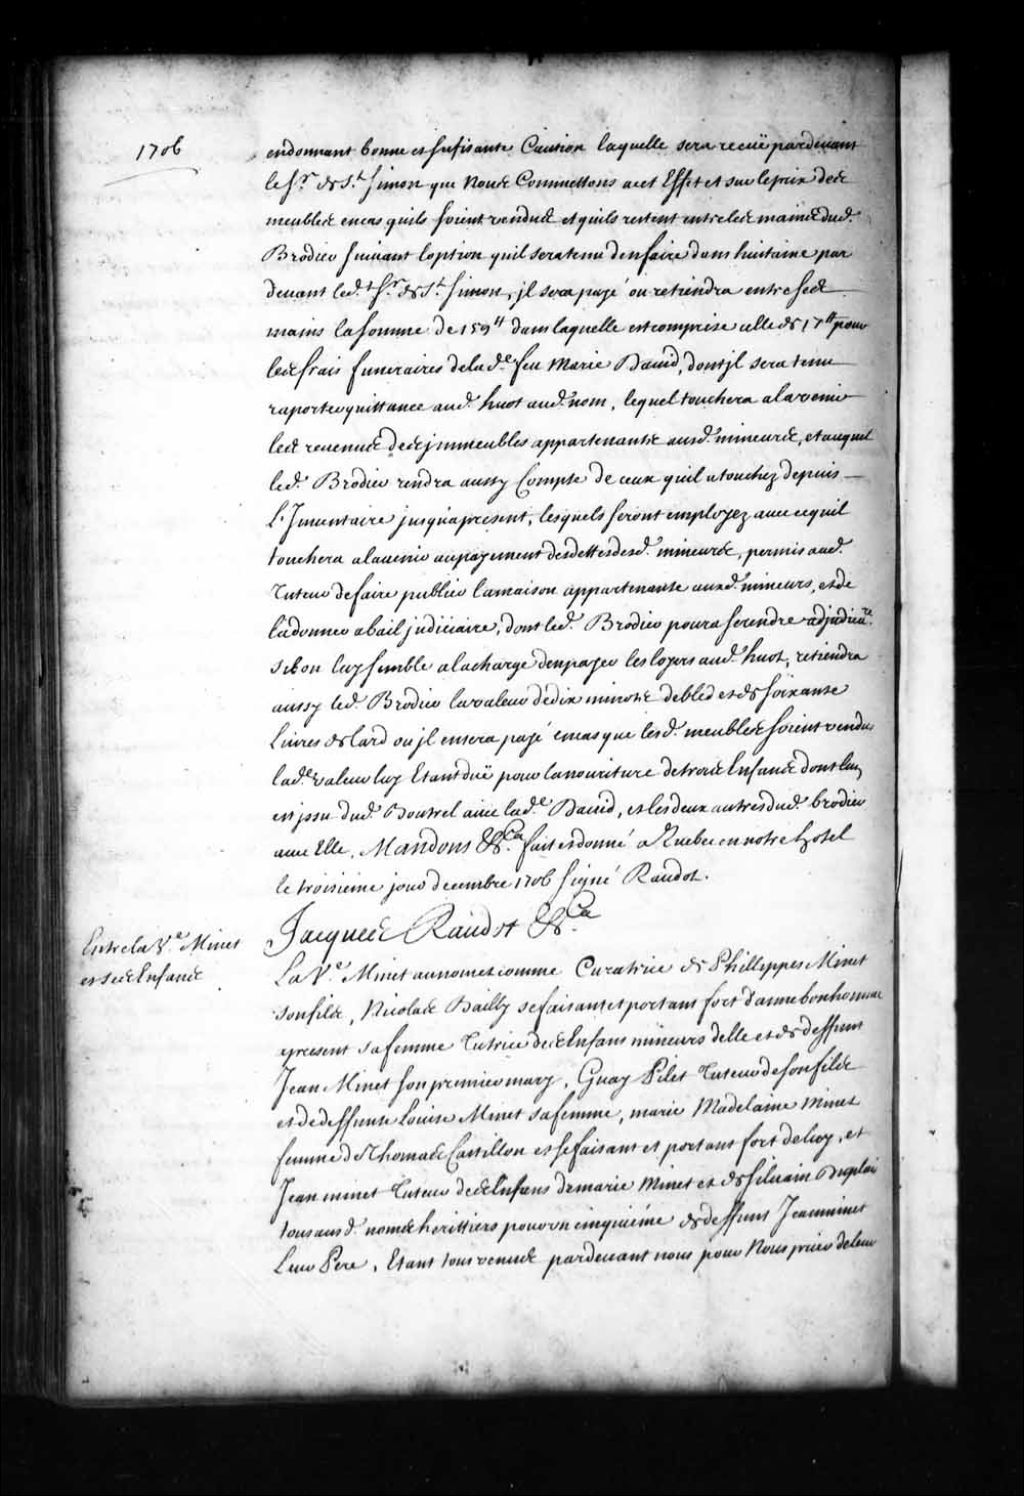 1706
endonnant bonne et sufisante Caution laquelle sera receüe pardevant
le Sr de St Simon que Nous Commettons acet Effet et sur leprix des
meubles encas quils soient vendus et quils restent entre les mains dud.
Brodier suivant loption quil seratenu denfaire dans huitaine par
devant led.t Sr de St Simon, jl sera payé ou retiendra entre ses
mains la somme de 159lt dans laquelle est comprise celle de 17lt pour
les frais funeraires delad.e feu Marie David, dont jl sera tenu
raporter quittance aud. huot aud. nom, lequel touchera alavenir
les revenus des jmmeubles appartenants ausd. mineurs, et auquel
led. Brodier rendra aussy Compte de ceux quil a touchez depuis
L'Jnventaire jusquapresent, lesquels seront employez avec cequil
touchera alavenir aupayement desdettes desd. mineurs, permis aud.
Tuteur defaire publier lamaison appartenante auxd. mineurs, et de
ladonner abail judiciaire, dont led. Brodier poura serendre adjudicare.
sibon luy semble alacharge denpayer les loyers aud. huot, retiendra
aussy led. Brodier lavaleur de dix minots debled et de soixante
Livres de lard ou jl en sera payé encas que lesd. meubles soient vendus
lad.e valeur luy Etant düe pour lanouriture detrois Enfans dont lun
est jssu dud. Boutrel avec lad.e David, et les deux autres dud. brodier
avec Elle. Mandons &.ca fait et donné a Quebec en notre hotel
le troisieme jour decembre 1706 signé Raudot.
Entre la Ve Minet
et ses Enfans
Jacques Raudot &.Ca
La Ve Minet au nom et comme Curatrice de Phillippes Minet
sonfils, Nicolas Bailly se faisant et portant fort danne bonhomme
apresent sa femme Tutrice des Enfans mineurs delle et de deffunt
Jean Minet son premier mary, Guay Pilet Tuteur de son fils
et de deffunte Louise Minet sa femme, marie Madelaine Minet
femme de Thomas Castillon et se faisant et portant fort de luy, et
Jean minet Tuteur des Enfans de marie Minet et de Silvain Duplai
tous ausd. noms heritiers pour un cinquiéme de deffunt Jean minet
Leur Pere, Etant tous venus pardevant nous pour Nous prier de leur